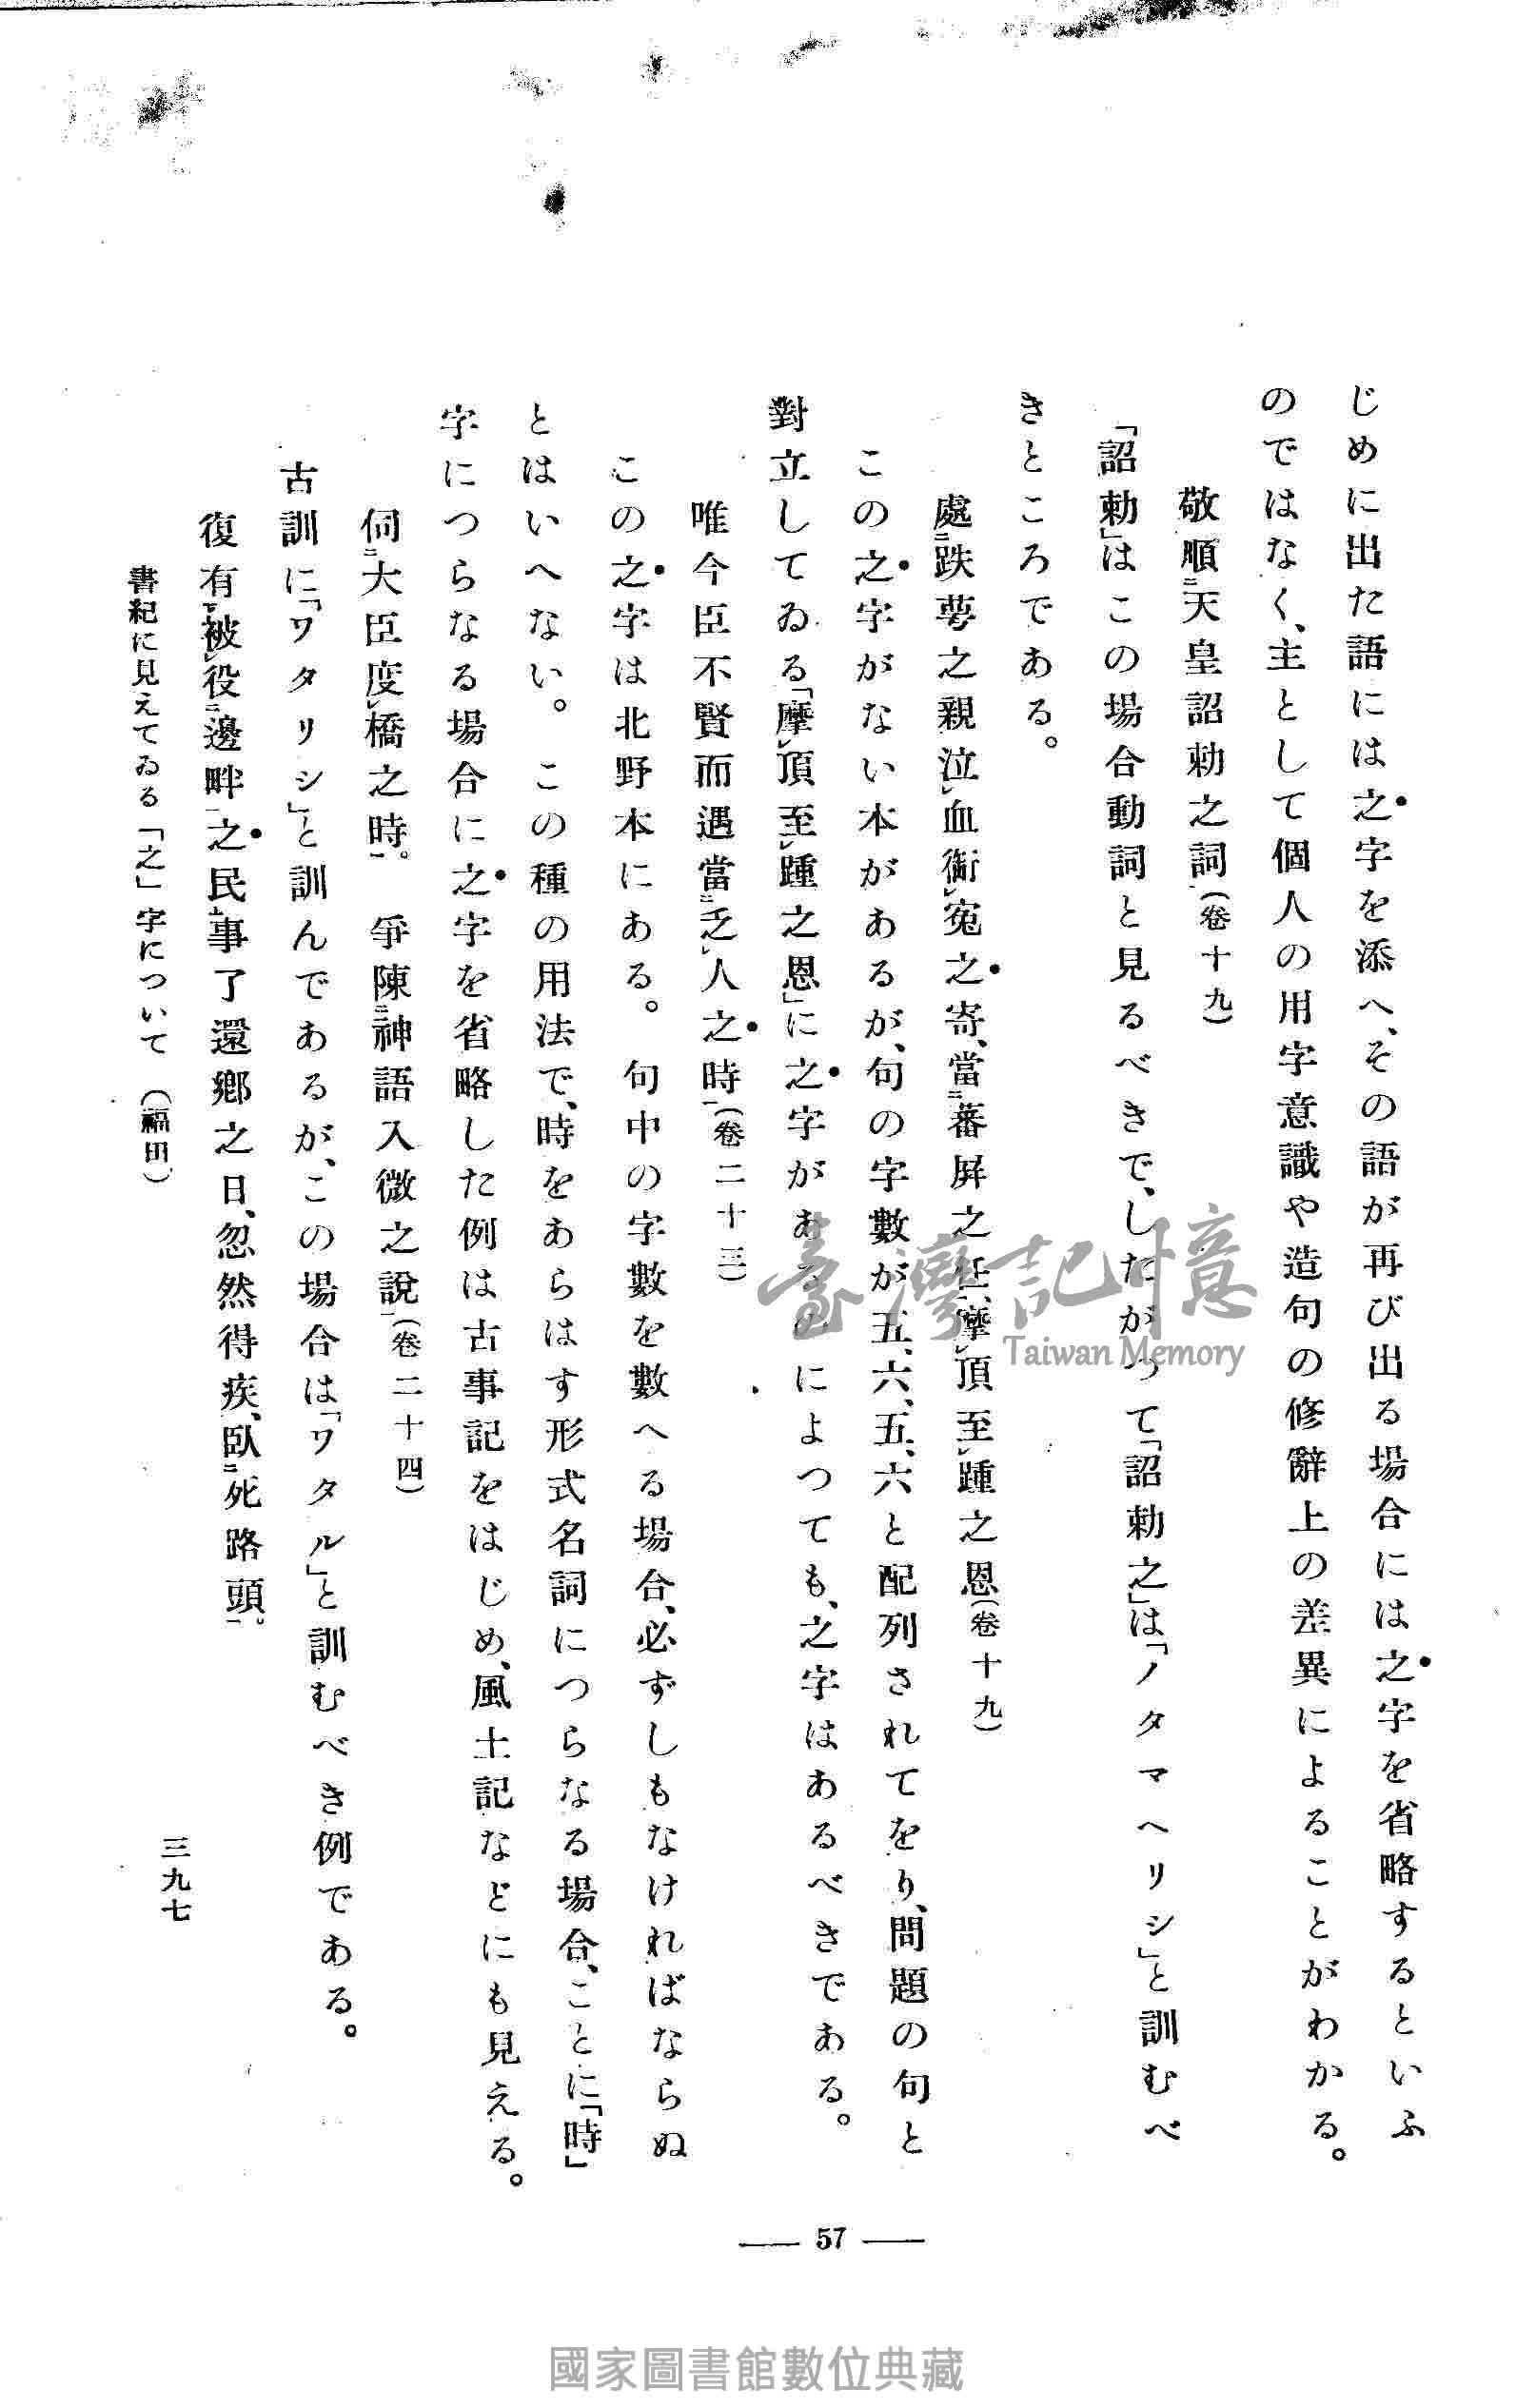 じめに出た語には之字を添へ、その語が再び出る場合には之字を省略するといふ
のではなく、主として個人の用字意識や造句の修辭上の差異によることがわかる。
敬順㆓天皇詔勅之詞㆒(卷十九)
「詔勅」はこの場合動詞と見るべきで、したがつて「詔勅之」は「ノタマヘリシ」と訓むべ
きところである。
處㆓跌萼之親泣㆑血銜㆑寃之寄、當㆓蕃屛之任㆒、摩㆑頂至㆑踵之恩(卷十九)
この之字がない本があるが、句の字數が五、六、五、六と配列されてをり、問題の句と
對立してゐる「摩㆑頂至㆑踵之恩」に之字があるのによつても、之字はあるべきである。
唯今臣不賢而遇當㆓乏㆑人之時㆒(卷二十三)
この之字は北野本にある。句中の字數を數へる場合、必ずしもなければならぬ
とはいへない。この種の用法で、時をあらはす形式名詞につらなる場合、ことに「時」
字につらなる場合に之字を省略した例は古事記をはじめ、風土記などにも見える。
伺㆘大臣度㆑橋之時㆒。爭陳㆓神語入微之說㆒(卷二十四)
古訓に「ワタリシ」と訓んであるが、この場合は「ワタル」と訓むべき例である。
復有㆘被㆑役㆓邊畔㆒之民㆖事了還鄉之日、忽然得疾、臥㆓死路頭㆒。
書紀に見えてゐる「之」字について(福田)
三九七
57
臺灣記憶
Taiwan Memory
國家圖書館數位典藏